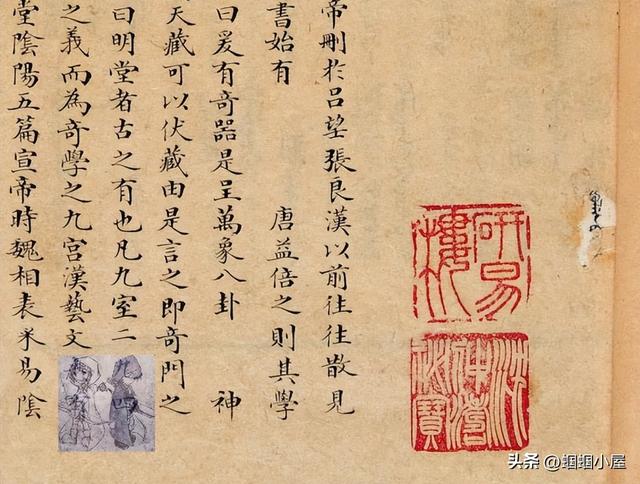 研易樓
沈仲濤秘寶
帝刪於呂望張良漢以前往往散見
書始有 唐益倍之則其學
曰爰有奇器是呈萬象八卦 神
天藏可以伏藏由是言之即奇門之
曰明堂者古之有也凡九室二
之義而為奇學之九宮漢藝文
堂陰陽五篇宣帝時魏相表采易陰
头条 @蝈蝈小屋